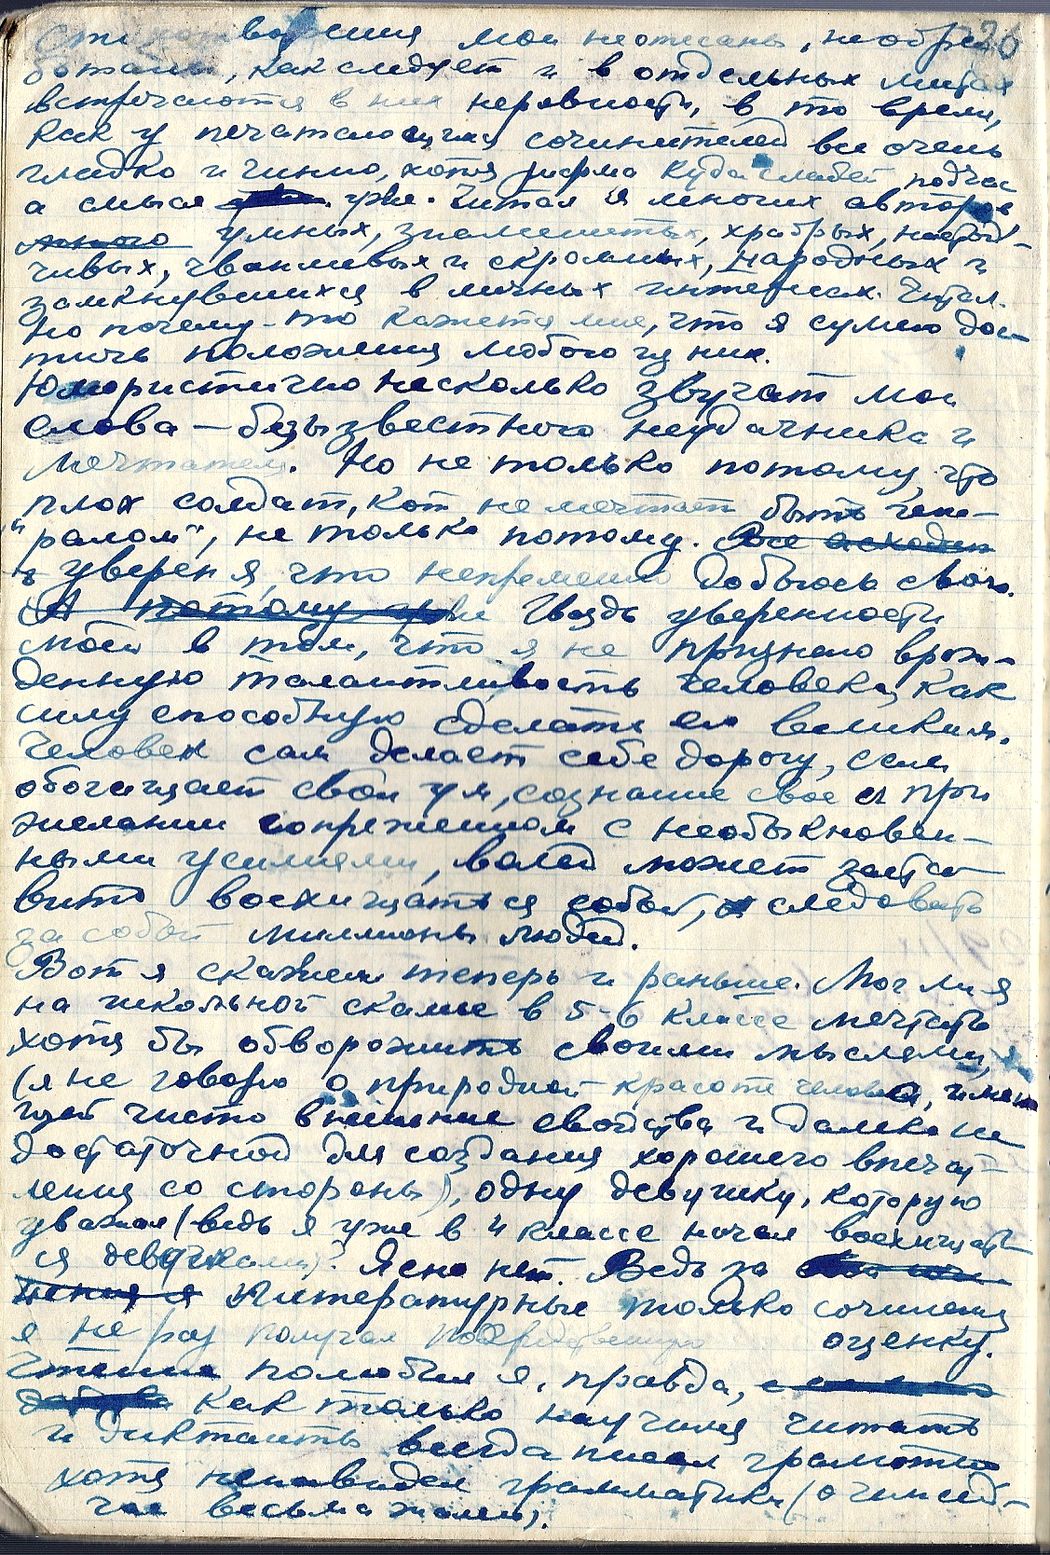 26
Стихотворения мои неотесаны, необра-
ботаны, как следует и в отдельных местах
встречаются в них неровности, в то время,
как у печатающихся сочинителей все очень
гладко и чинно, хотя рифма куда слабей подчас
а смысл уже. Читал я многих авторов
много умных, знаменитых, храбрых, настой-
чивых, чванливых и скромных, народных и
замкнувшихся в личных интересах. Читал.
Но почему-то кажется мне, что я сумею дос-
тичь положения любого из них.
Юмористично несколько звучат мои
слова – безызвестного неудачника и
мечтателя. Но не только потому, что
"плох солдат, кот. не мечтает быть гене-
ралом", не только потому. Все исходит
я уверен я, что непременно добьюсь своего.
А потому Гвоздь уверенности
моей в том, что я не признаю врож-
денную талантливость человека, как
силу способную сделать его великим.
Человек сам делает себе дорогу, сам
обогащает свой ум, сознание свое и при
желании сопряженном с необыкновен-
ными усилиями, волей может заста-
вить восхищаться собой, и следовать
за собой миллионы людей.
Вот я скажем теперь и раньше. Мог ли я
на школьной скамье в 5-6 классе мечтать
хотя бы обворожить своими мыслями,
(я не говорю о природной красоте человека, имею-
щей чисто внешние свойства и далеко не
достаточной для создания хорошего впечат-
ления со стороны), одну девушку, которую
уважал (ведь я уже в 4 классе начал восхищать-
ся девушками)? Ясно нет. Ведь за
литературные только сочинения
я не раз получал посредственную оценку.
Чтение полюбил я, правда,
как только научился читать
и диктанты всегда писал грамотно
хотя ненавидел грамматику (о чем сей-
час весьма жалею).